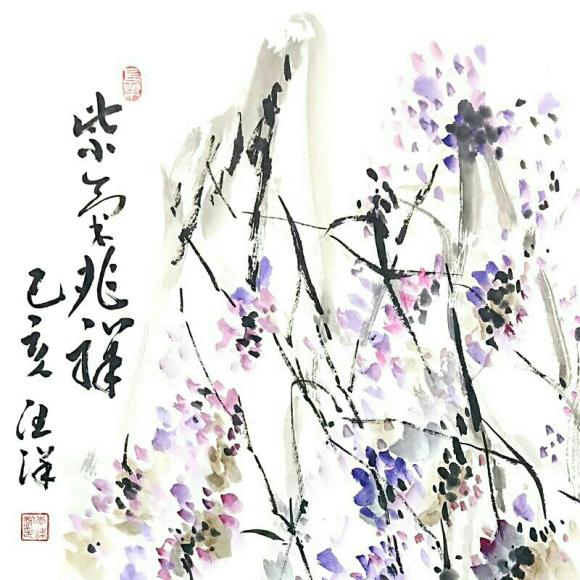 紫气兆祥
己亥 汪洋